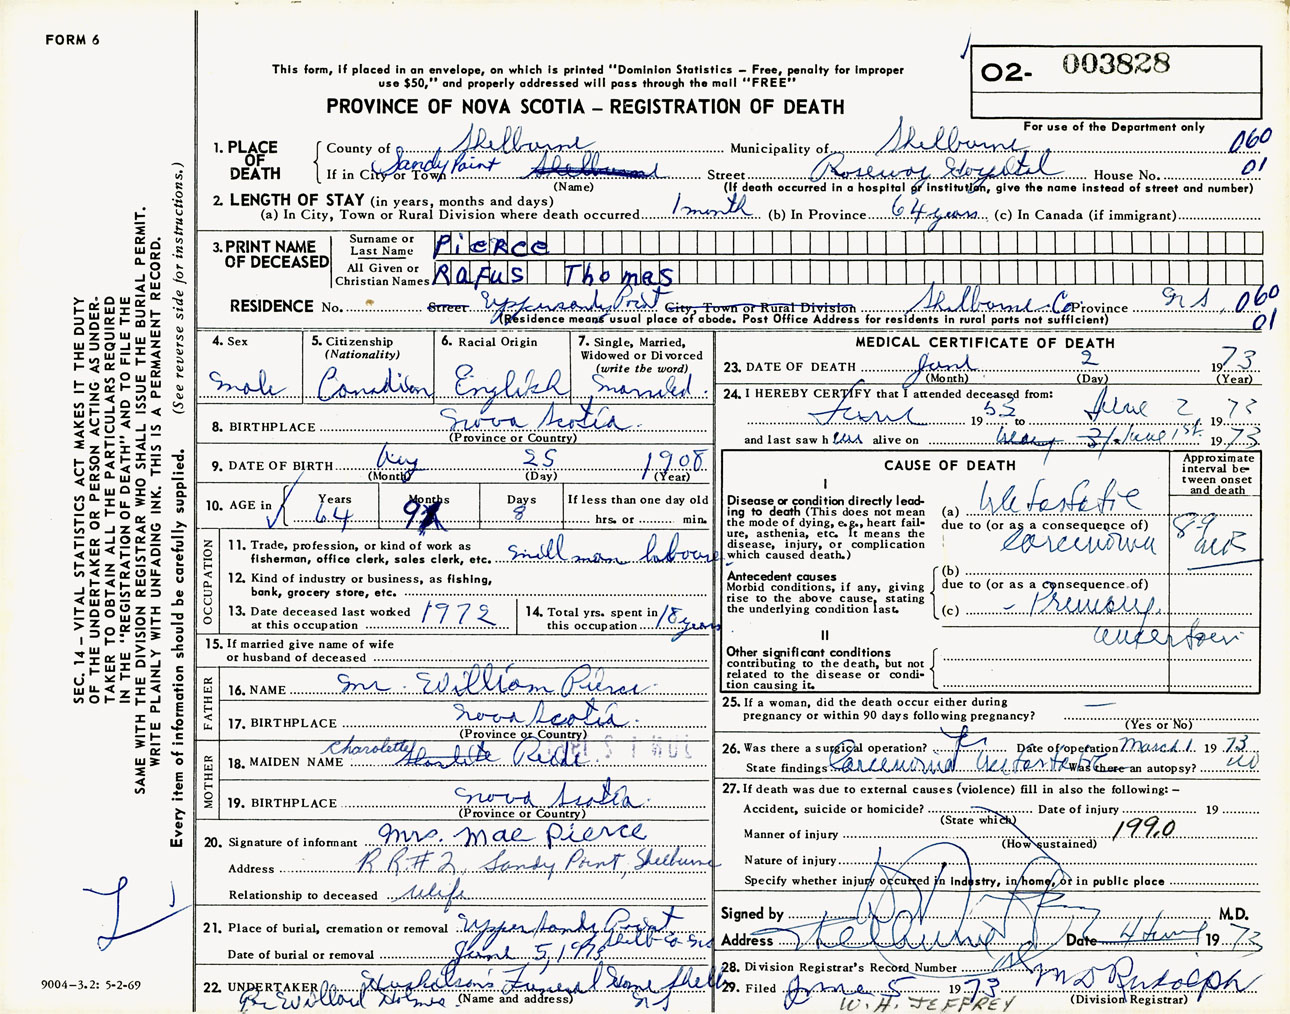 FORM 6
This form, if placed in an envelope, on which is printed "Dominion Statistics – Free, penalty for improper
use $50," and properly addressed will pass through the mail "FREE"
PROVINCE OF NOVA SCOTIA – REGISTRATION OF DEATH
02- 003828
For use of the Department only
1. PLACE OF DEATH
County of Shelburne Municipality of Shelburne 060
If in City or Town Sandy Point Shelburne Street Roseway Hospital House No. 01
(Name) (If death occurred in a hospital or institution, give the name instead of street and number)
2. LENGTH OF STAY (in years, months and days)
(a) In City, Town or Rural Division where death occurred 1 month (b) In Province 64 years (c) In Canada (if immigrant)
3. PRINT NAME OF DECEASED
Surname or Last Name Pierce
All Given or Christian Names Rafus Thomas
RESIDENCE No. Street Upper Sandy Point City, Town or Rural Division Shelburne Co Province N S, 060
(Residence means usual place of abode. Post Office Address for residents in rural parts not sufficient) 01
4. Sex
male
5. Citizenship (Nationality)
Canadian
6. Racial Origin
English
7. Single, Married, Widowed or Divorced (write the word)
married.
8. BIRTHPLACE Nova Scotia.
(Province or Country)
9. DATE OF BIRTH Aug 25 1908
(Month) (Day) (Year)
10. AGE in Years 64 Months 9 Days 8 If less than one day old
hrs. or min.
OCCUPATION
11. Trade, profession, or kind of work as
fisherman, office clerk, sales clerk, etc. mill man laboure
12. Kind of industry or business, as fishing,
bank, grocery store, etc.
13. Date deceased last worked
at this occupation 1972
14. Total yrs. spent in
this occupation 18 years
15. If married give name of wife
or husband of deceased
FATHER
16. NAME Mr. William Pierce.
17. BIRTHPLACE Nova Scotia.
(Province or Country)
MOTHER
Charolette
18. MAIDEN NAME
19. BIRTHPLACE Nova Scotia.
(Province or Country)
20. Signature of informant Mrs. Mae Pierce
Address R R # 2, Sandy Point, Shelburne
Relationship to deceased Wife
21. Place of burial, cremation or removal Upper Sandy Point
Shelb Co NS
Date of burial or removal June 5, 1973
22. UNDERTAKER Funeral Home Shelb
(Name and address) N S
Willard Holmes
MEDICAL CERTIFICATE OF DEATH
23. DATE OF DEATH June 2 1973
(Month) (Day) (Year)
24. I HEREBY CERTIFY that I attended deceased from:
June 19 52 to June 2 19 73
and last saw h alive on June 1st. 19 73
CAUSE OF DEATH
Approximate interval between onset and death
I
Disease or condition directly leading to death (This does not mean the mode of dying, e.g., heart failure, asthenia, etc. It means the disease, injury, or complication which caused death.)
(a) Metastatic
due to (or as a consequence of)
Carcinoma
8-9
Antecedent causes
Morbid conditions, if any, giving rise to the above cause, stating the underlying condition last.
(b)
due to (or as a consequence of)
(c) - Primary
uncertain
II
Other significant conditions
contributing to the death, but not related to the disease or condition causing it.
25. If a woman, did the death occur either during
pregnancy or within 90 days following pregnancy? —
(Yes or No)
26. Was there a surgical operation? Date of operation March 1 19 73
State findings Carcinoma Metastatic Was there an autopsy? no
27. If death was due to external causes (violence) fill in also the following: –
Accident, suicide or homicide? Date of injury 19
(State which)
Manner of injury 199.0
(How sustained)
Nature of injury
Specify whether injury occurred in industry, in home, or in public place
Signed by M.D.
Address Shelburne Date 4 June 1973
28. Division Registrar's Record Number
29. Filed June 5 1973 M D Rudolph
(Division Registrar)
W. H. JEFFREY
SEC. 14 – VITAL STATISTICS ACT MAKES IT THE DUTY
OF THE UNDERTAKER OR PERSON ACTING AS UNDER-
TAKER TO OBTAIN ALL THE PARTICULARS REQUIRED
IN THE "REGISTRATION OF DEATH" AND TO FILE THE
SAME WITH THE DIVISION REGISTRAR WHO SHALL ISSUE THE BURIAL PERMIT.
WRITE PLAINLY WITH UNFADING INK. THIS IS A PERMANENT RECORD.
Every item of information should be carefully supplied. (See reverse side for instructions.)
9004-3.2: 5-2-69